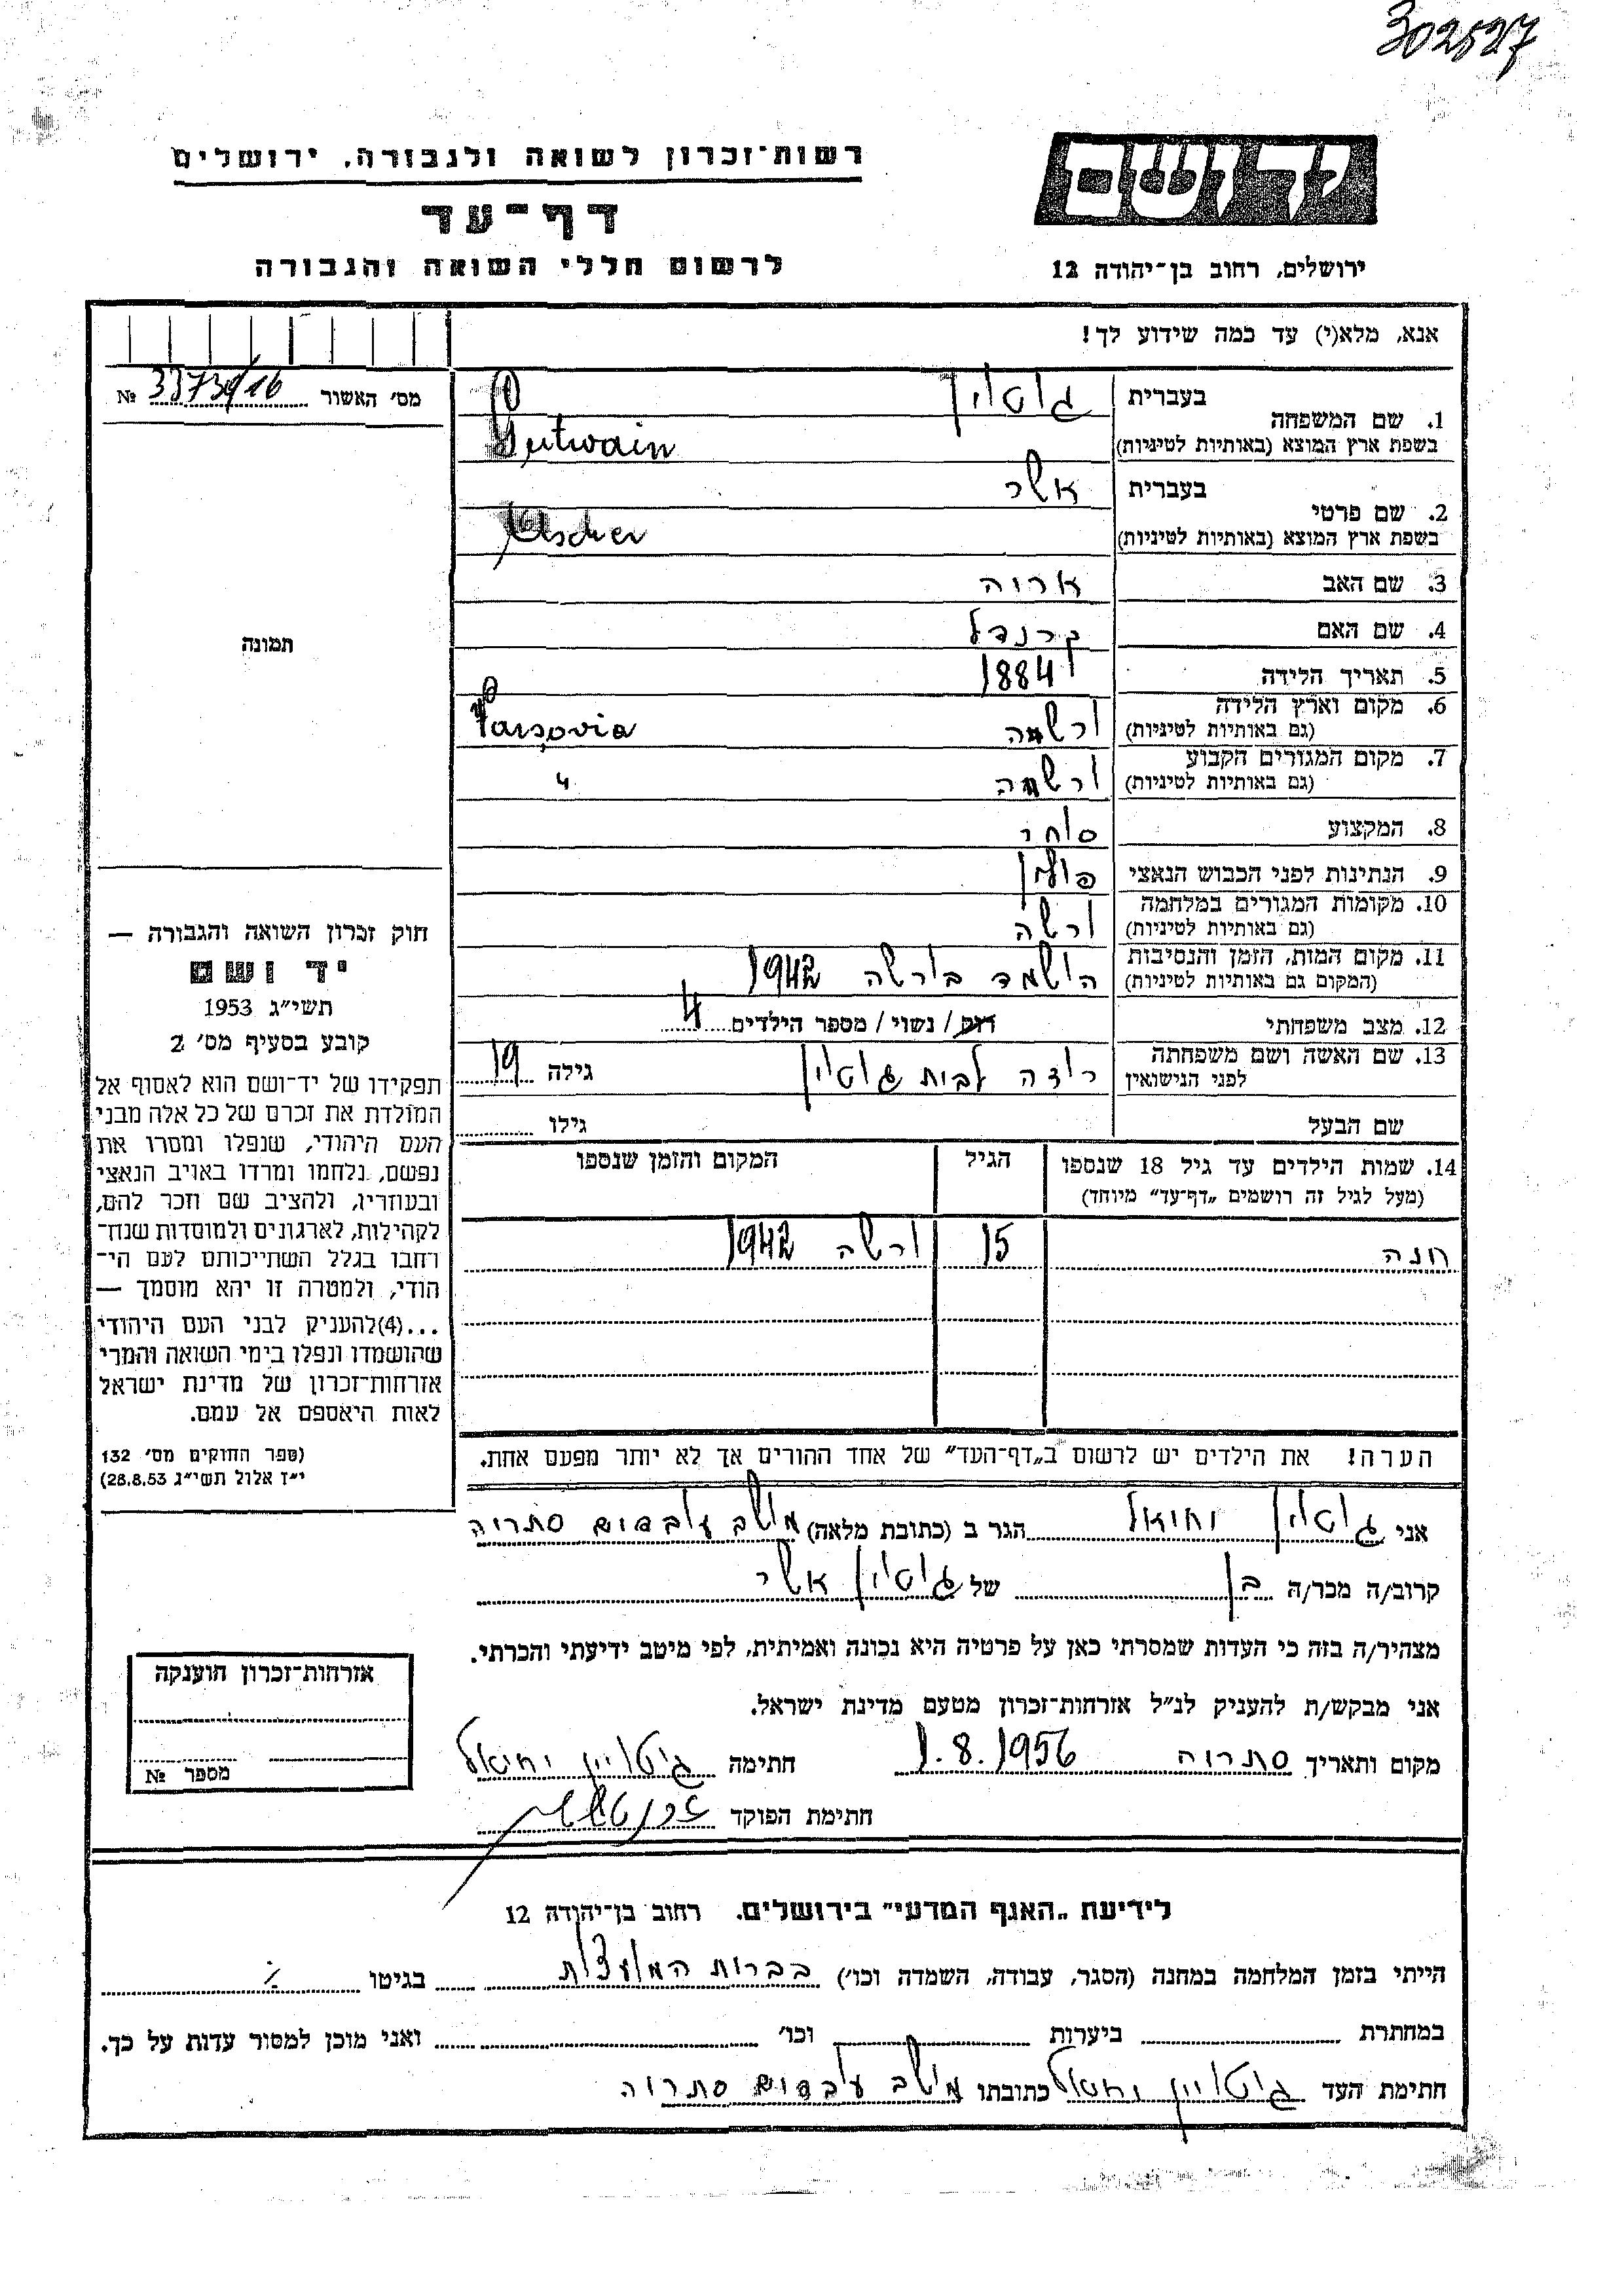 302527
רשות־זכרון לשואה ולגבורה, ירושלים
יד ושם
דף־עד
לרשום חללי השואה והגבורה
ירושלים, רחוב בן־יהודה 12
אנא, מלא(י) עד כמה שידוע לך!
מס׳ האשור № 33734/16
1. שם המשפחה
בעברית גוטויין
בשפת ארץ המוצא (באותיות לטיניות) Gutwain
2. שם פרטי
בעברית אשר
בשפת ארץ המוצא (באותיות לטיניות) Ascher
3. שם האב אריה
4. שם האם
5. תאריך הלידה 1884
6. מקום וארץ הלידה
(גם באותיות לטיניות) ורשה Varsovia
7. מקום המגורים הקבוע
(גם באותיות לטיניות) ורשה "
8. המקצוע סוחר
9. הנתינות לפני הכבוש הנאצי פולין
10. מקומות המגורים במלחמה
(גם באותיות לטיניות) ורשה
11. מקום המות, הזמן והנסיבות
(המקום גם באותיות לטיניות) הושמד בורשה 1942
12. מצב משפחתי רוק / נשוי / מספר הילדים 4
13. שם האשה ושם משפחתה
לפני הנישואין לבית גוטויין גילה
שם הבעל גילו
14. שמות הילדים עד גיל 18 שנספו הגיל המקום והזמן שנספו
(מעל לגיל זה רושמים „דף־עד״ מיוחד)
חנה 15 ורשה 1942
הערה! את הילדים יש לרשום ב„דף־העד״ של אחד ההורים אך לא יותר מפעם אחת.
תמונה
חוק זכרון השואה והגבורה —
יד ושם
תשי״ג 1953
קובע בסעיף מס׳ 2
תפקידו של יד־ושם הוא לאסוף אל
המולדת את זכרם של כל אלה מבני
העם היהודי, שנפלו ומסרו את
נפשם, נלחמו ומרדו באויב הנאצי
ובעוזריו, ולהציב שם וזכר להם,
לקהילות, לארגונים ולמוסדות שנח־
רחבו בגלל השתייכותם לעם הי־
הודי, ולמטרה זו יהא מוסמך —
...(4)להעניק לבני העם היהודי
שהושמדו ונפלו בימי השואה והמרי
אזרחות־זכרון של מדינת ישראל
לאות היאספם אל עמם.
(ספר החוקים מס׳ 132
י״ז אלול תשי״ג 28.8.53)
אני גוטויין יחיאל הגר ב (כתובת מלאה) מושב סתריה
קרוב/ה מכר/ה בן של גוטויין אשר
מצהיר/ה בזה כי העדות שמסרתי כאן על פרטיה היא נכונה ואמיתית, לפי מיטב ידיעתי והכרתי.
אני מבקש/ת להעניק לנ״ל אזרחות־זכרון מטעם מדינת ישראל.
מקום ותאריך סתריה 1.8.1956 חתימה גוטויין יחיאל
חתימת הפוקד
אזרחות־זכרון הוענקה
מספר №
לידיעת „האגף המדעי״ בירושלים. רחוב בן־יהודה 12
הייתי בזמן המלחמה במחנה (הסגר, עבודה, השמדה וכו׳) בברית המועצות בגיטו
במחתרת ביערות וכו׳ ואני מוכן למסור עדות על כך.
חתימת העד גוטויין יחיאל כתובתו מושב סתריה